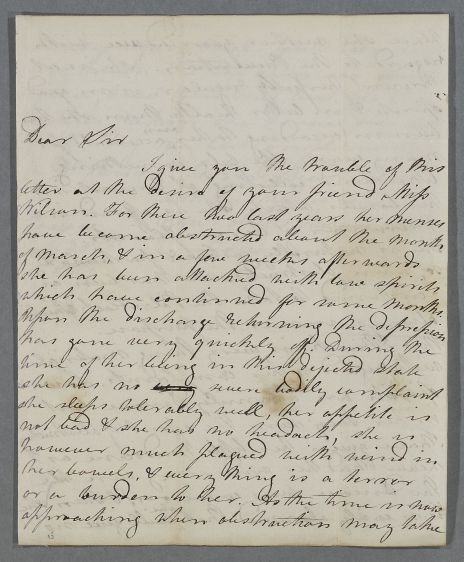 Dear Sir
I give you the trouble of this
letter at the desire of your friend Miss
Wilson. For these two last years her menses
have become obstructed about the month
of March, & in a few weeks afterwards
she has been attacked with low spirits
which have continued for some months.
Upon the discharge returning the depression
has gone very quickly off. During the
time of her being in this dejected state
she has no severe bodily complaint
she sleeps tolerably well, her appetite is
not bad & she has no headach, she is
however much plagued with wind in
her bowels, & every thing is a terror
or a burden to her. As the time is now
approaching when obstruction may take